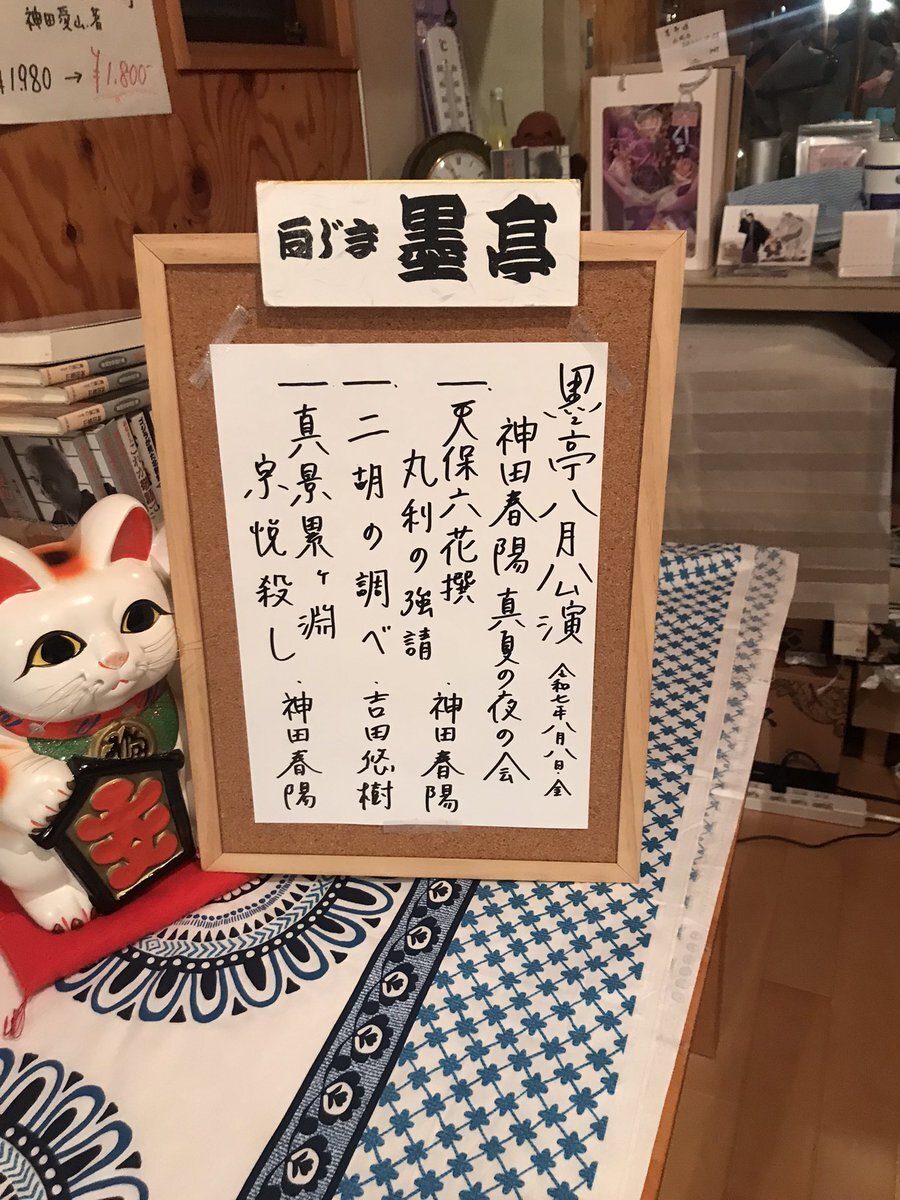 神田愛山著
¥1980→¥1.800-
向じま 墨亭
墨亭八月公演 令和七年八月八日・金
神田春陽 真夏の夜の会
一、天保六花撰
丸利の強請 ・神田春陽
一、二胡の調べ ・吉田悠樹
一 真景累ヶ淵
宗悦殺し ・神田春陽
℃